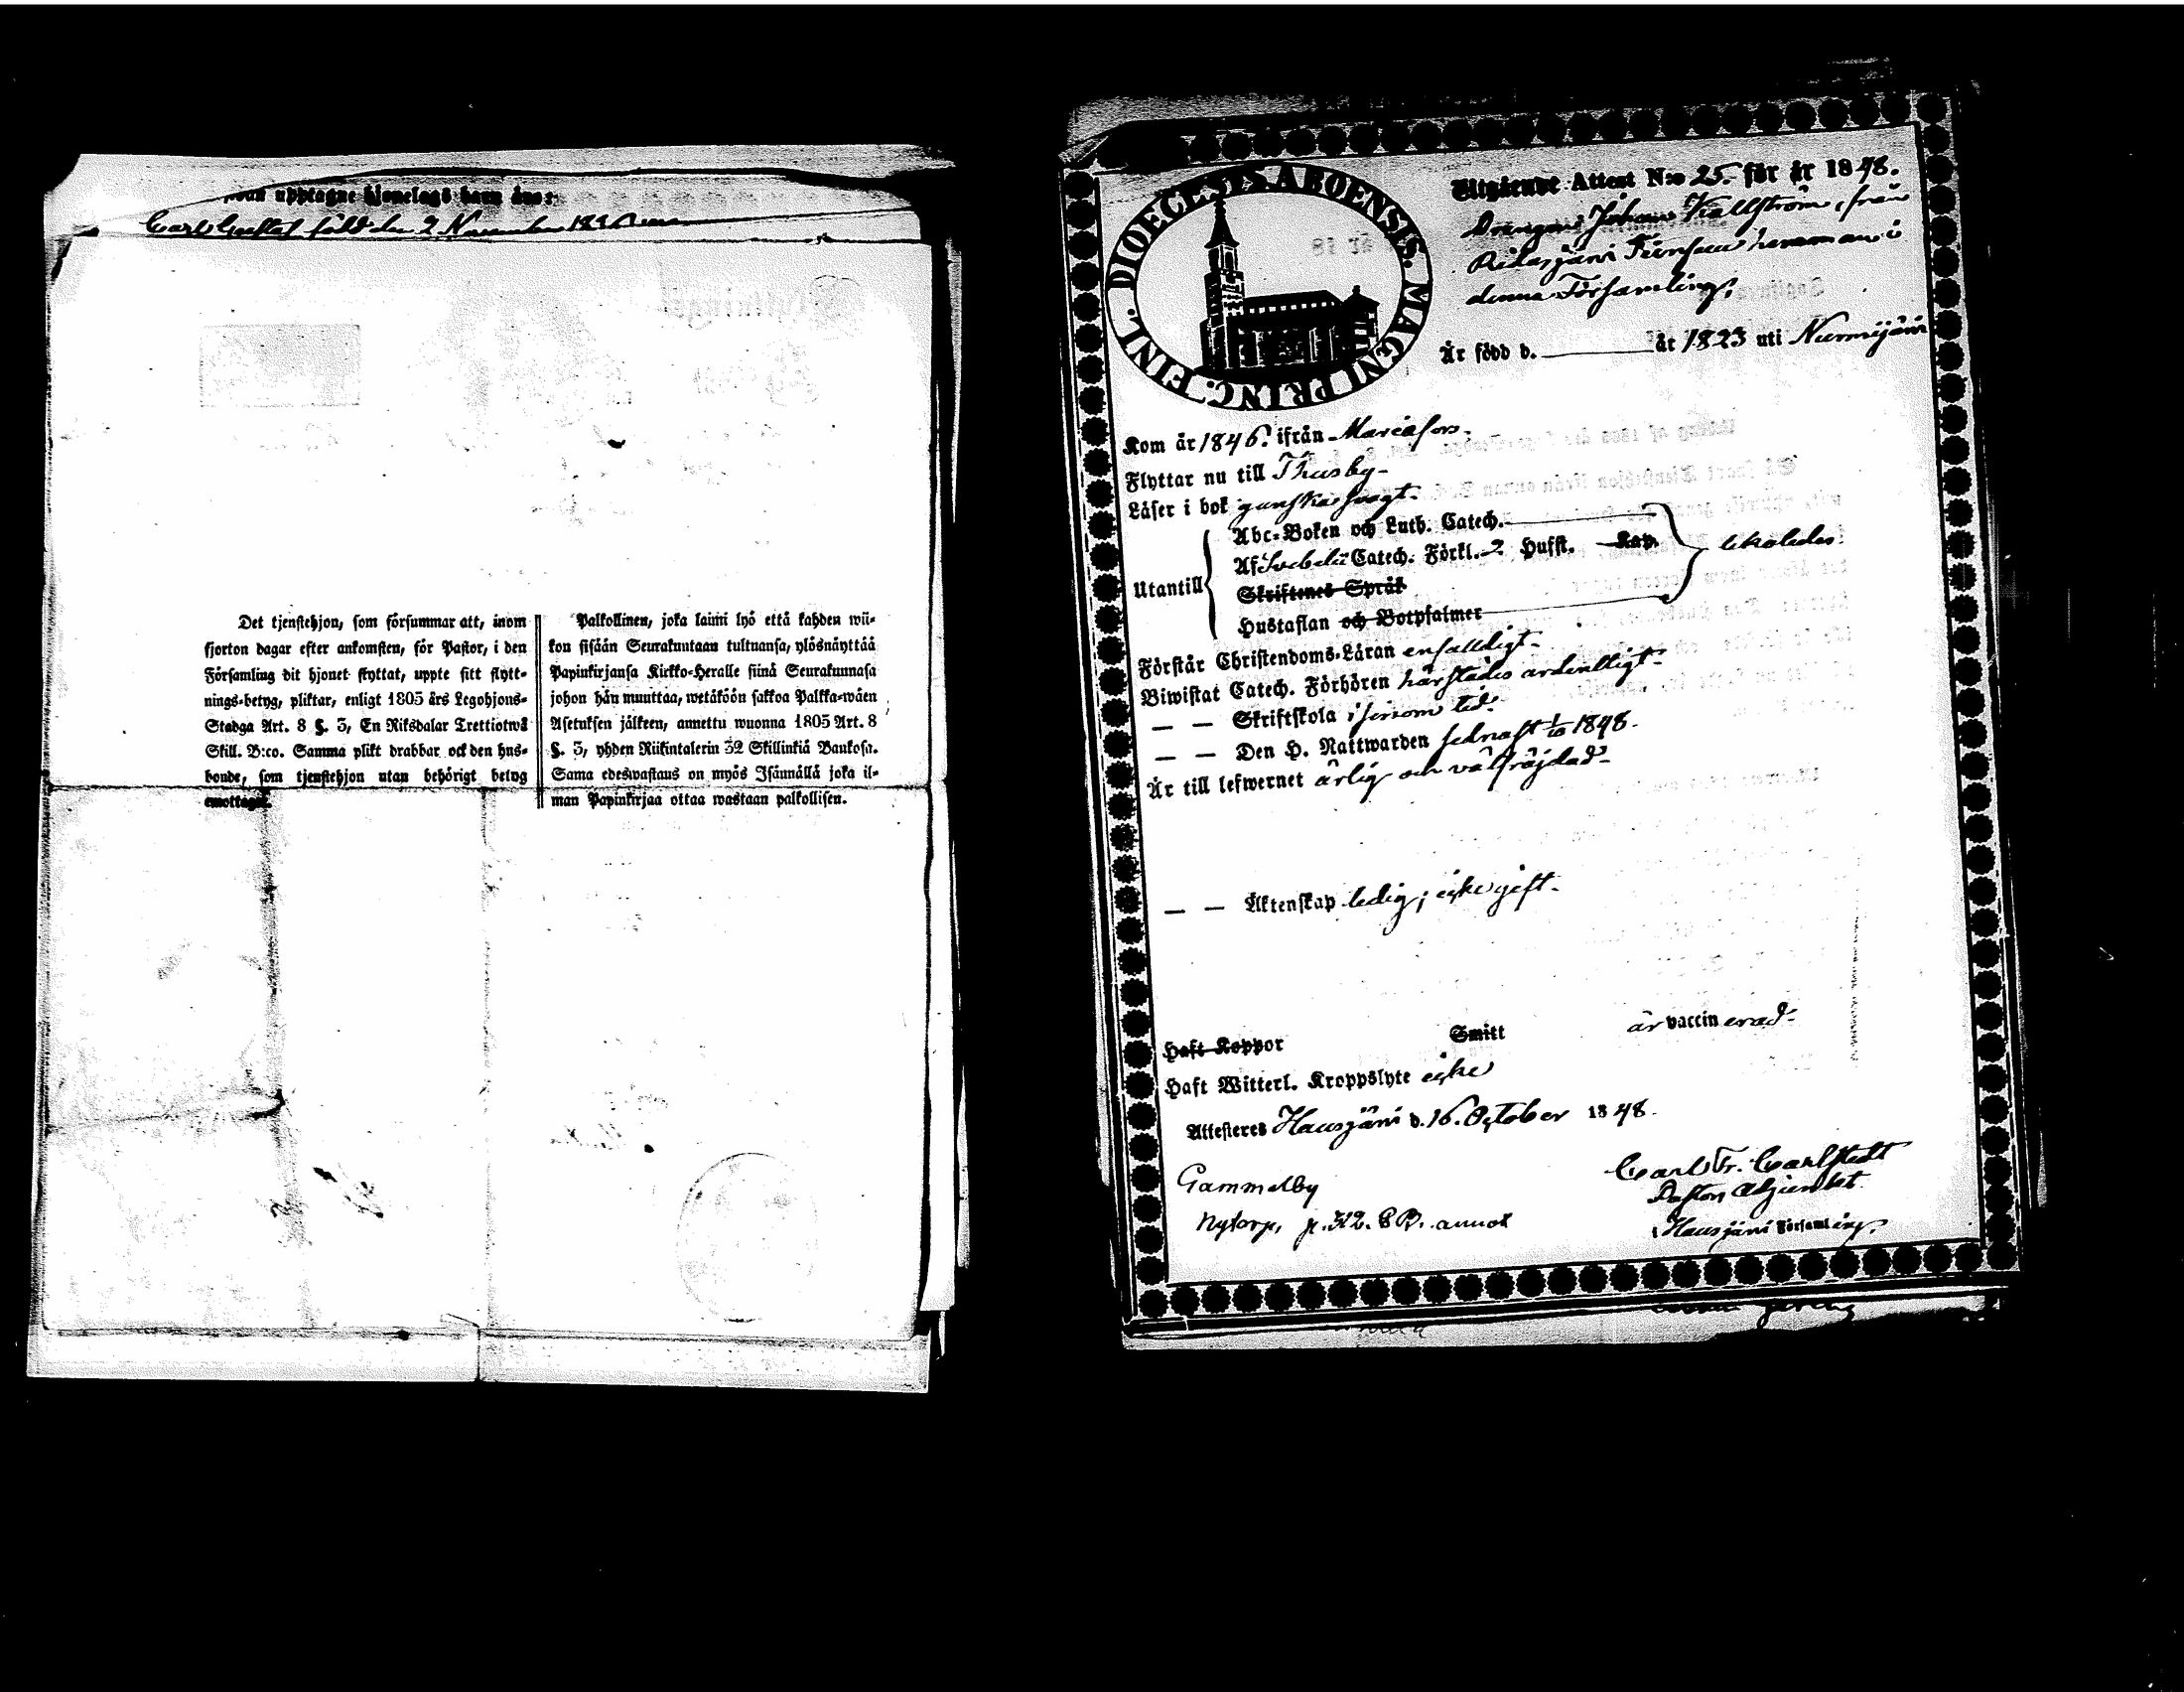 upptagne hjonelags barn äro:
Carl Gustaf född den 2 November 1846
Det tjenstehjon, som försummar att, inom
fjorton dagar efter ankomsten, för Pastor, i den
Församling dit hjonet flyttat, uppte sitt flytt-
nings-betyg, pliktar, enligt 1805 års Legohjons-
Stadga Art. 8 §. 3, En Riksdalar Trettiotwå
Skill. B:co. Samma plikt drabbar ock den hus-
bonde, som tjenstehjon utan behörigt betyg
emottagit.
Palkollinen, joka laimi lyö että kahden wii-
kon sisään Seurakuntaan tultuansa, ylösnäyttää
Papinkirjansa Kirkko-Heralle siinä Seurakunnasa
johon hän muuttaa, wetäköön sakkoa Palkka-wäen
Asetuksen jälkeen, annettu wuonna 1805 Art. 8
§. 3, yhden Riikintalerin 32 Skillinkiä Baukosa.
Sama edeswastaus on myös Isännällä joka il-
man Papinkirjaa ottaa wastaan palkollisen.
DIOECESIS ABOENSIS. MAGNI PRINC. FINL.
Utgående Attest N:o 25. för år 1848.
Drängen Johan Källström, från
Ridasjärvi hemman i
denna Församling;
Är född d. år 1823 uti Nurmijärvi
Kom år 1846. ifrån Mariefors.
Flyttar nu till Thusby
Läser i bok ganska svagt.
Utantill
Abc-Boken och Luth. Catech.
Af Svebelii Catech. Förkl. 2 Hufst. Kap.
Skriftenes Språk
Hustaflan och Botpsalmer
likaledes.
Förstår Christendoms-Läran enfaldigt
Biwistat Catech. Förhören härstädes ordentligt
— — Skriftskola i sinom tid
— — Den H. Nattwarden sednast 1/10 1848.
Är till lefwernet ärlig och välfräjdad
— — Äktenskap ledig; icke gift
Haft Koppor Smitt är vaccinerad
Haft Witterl. Kroppslyte icke
Attesteres Hausjärvi d. 16. October 1848.
Carl Fr. Carlstedt
Pastors Adjunkt
Hausjärvi Församling.
Gammelby
Nytorp,